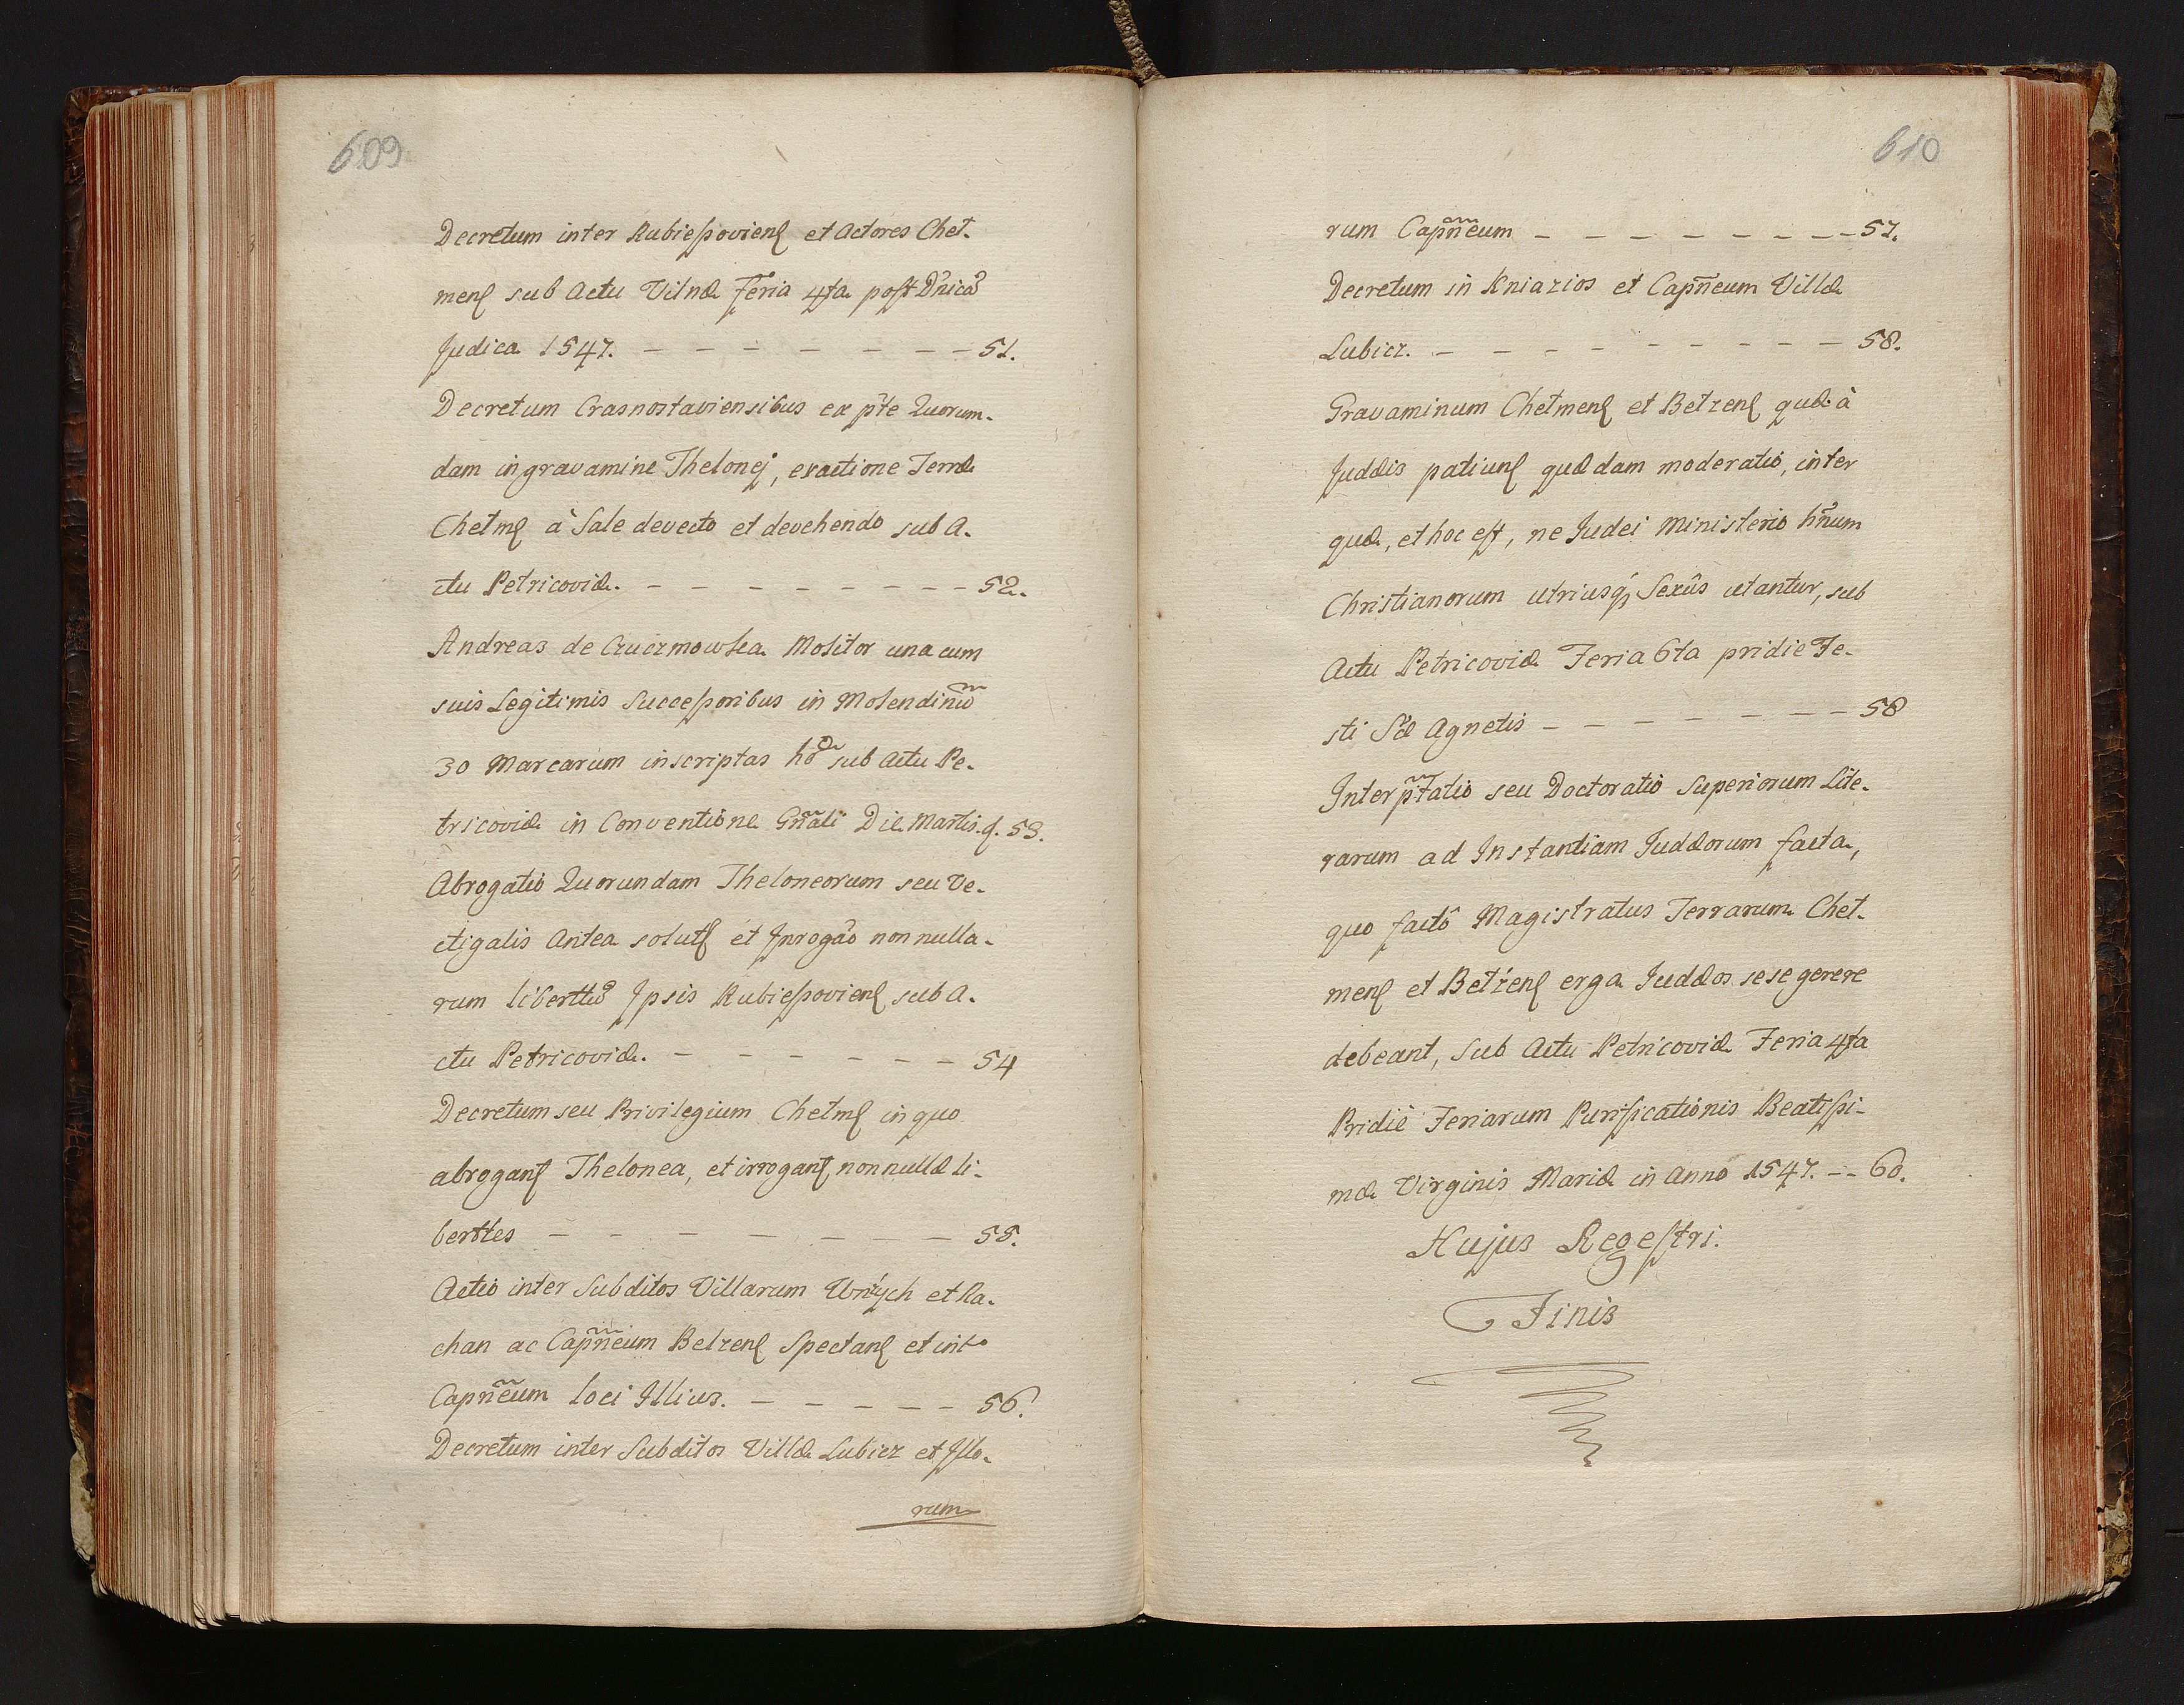 609
Decretum inter Rubieſsovienſ et Actores Chet-
menſ sub Actu Vilnæ Feria 4ta poſt D̄nicā
Judica 1547. — — — — — — — 51.
Decretum Crasnostaviensibus ex p̄te Quorum-
dam in gravamine Thelonej, exactione Terræ
Chetmſ à Sale devecto et devehendo sub A-
ctu Petricoviæ. — — — — — — — 52.
Andreas de Molitor una cum
suis Legitimis Succeſsoribus in Molendinū
30 Marcarum inscriptas hō sub Actu Pe-
tricoviæ in Conventione Gn̄ali Die Martis. f. 53.
Abrogatio Quorundam Theloneorum seu Ve-
ctigalis Antea solutſ et Jnrogāo nonnulla-
rum liberttū Jpsis Rubieſsovienſ sub A-
ctu Petricoviæ. — — — — — — 54
Decretum seu Privilegium Chetmſ in quo
abroganſ Thelonea, et irroganſ nonnullæ li-
berttes — — — — — — — 55.
Actio inter Subditos Villarum et Ra-
chan ac Capn̄eum Belzenſ Spectanſ et int
Capn̄eum loci Jllius. — — — — — 56.
Decretum inter Subditos Villæ Lubicz et Jllo-
rum
610
rum Capn̄eum — — — — — — — — 57.
Decretum in Kniazios et Capn̄eum Villæ
Lubicz. — — — — — — — — — 58.
Gravaminum Chetmenſ et Betzenſ quæ à
Judæis patiunſ quædam moderatio, inter
quæ, et hoc eſt, ne Judei Ministerio hn̄um
Christianorum utriusq; Sexûs utantur, sub
Actu Petricoviæ Feria 6ta pridie Fe-
sti S̄æ Agnetis — — — — — — — 58
Interp̄tatio seu Doctoratio Superiorum Lite-
rarum ad Instantiam Judæorum facta,
quo factô Magistratus Terrarum Chet-
menſ et Betżenſ erga Judæos sese gerere
debeant, Sub Actu Petricoviæ Feria 4ta
Pridiè Feriarum Purificationis Beatiſsi-
mæ Virginis Mariæ in Anno 1547. — — 60.
Hujus Regeſtri.
Finis